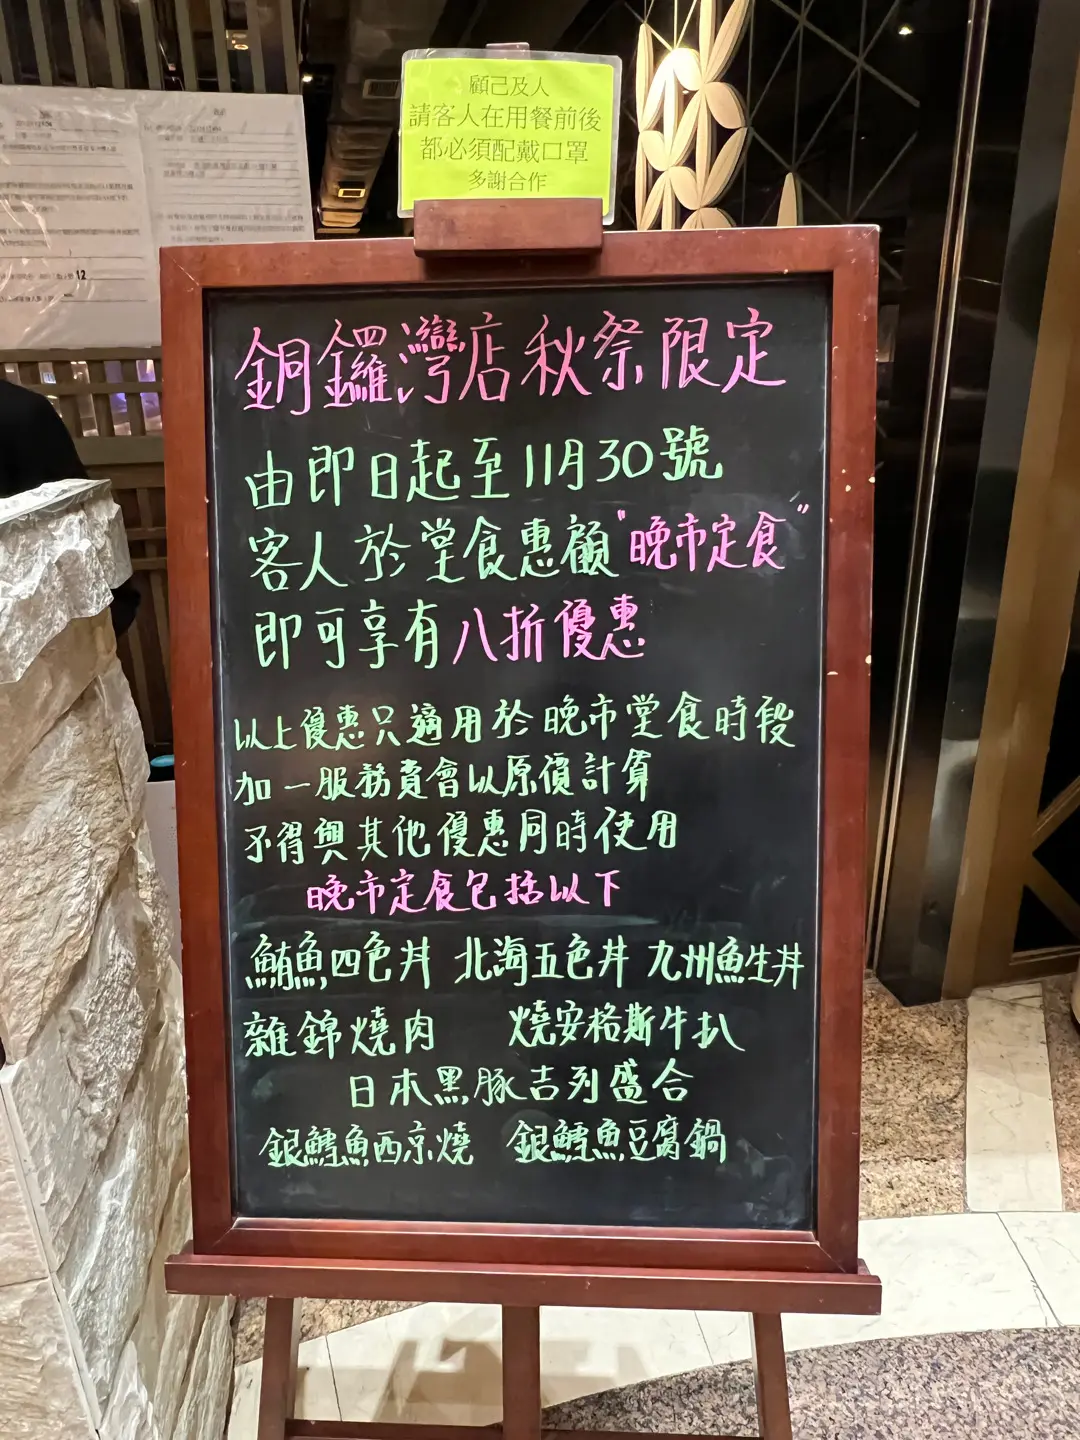 顧己及人
請客人在用餐前後
都必須配戴口罩
多謝合作
銅鑼灣店秋祭限定
由即日起至11月30號
客人於堂食惠顧"晚市定食"
即可享有八折優惠
以上優惠只適用於晚市堂食時段
加一服務費會以原價計算
不得與其他優惠同時使用
晚市定食包括以下
鮪魚四色丼 北海五色丼 九州魚生丼
雜錦燒肉 燒安格斯牛扒
日本黑豚吉列盛合
銀鱈魚西京燒 銀鱈魚豆腐鍋
12